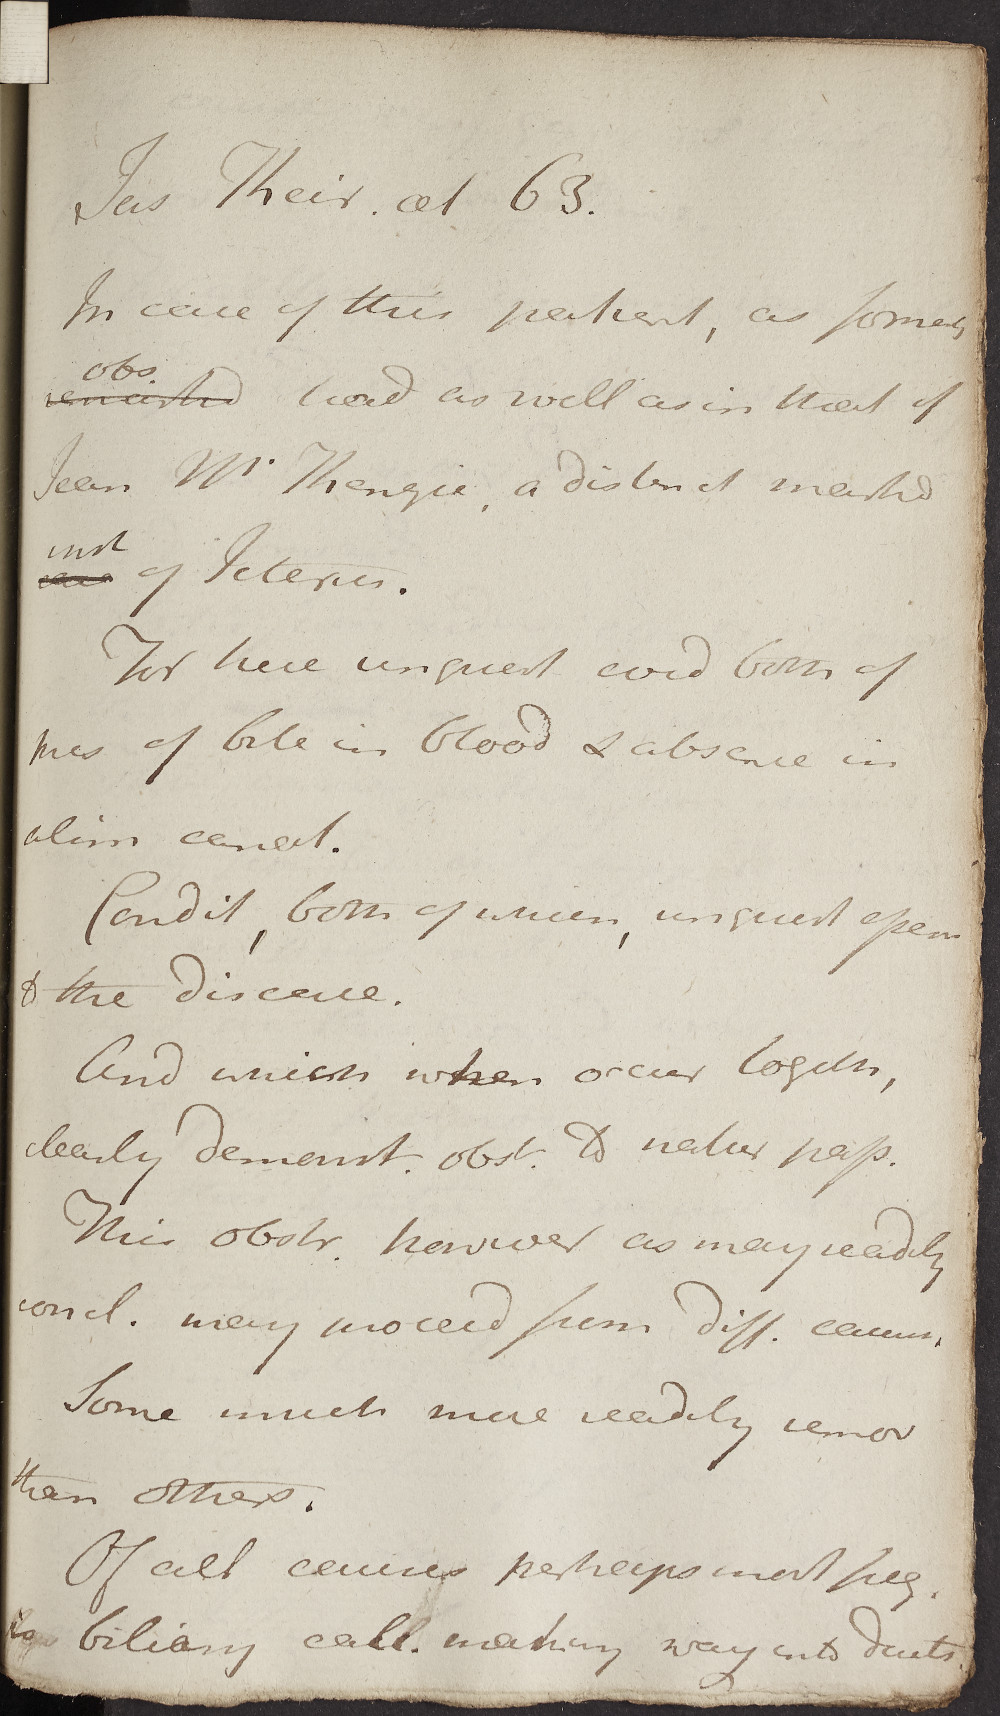 Jas Their. æt 63.
In case of this patient, as formerly
obs.
remarked had as well as in that of
Jean Mc. Thengie, a distinct marked
inst
case of Icterus.
For here unquest evid both of
pres of bile in blood & absence in
alim canal.
Condit, both of which, unquest essent
to the disease.
And which when occur togeth,
clearly demonst. obst. to natur pass.
This obstr. however as may readily
concl. may proceed from diff. causes.
Some much more readily remov
than others.
Of all causes perhaps most freq.
is biliary call. making way into ducts.